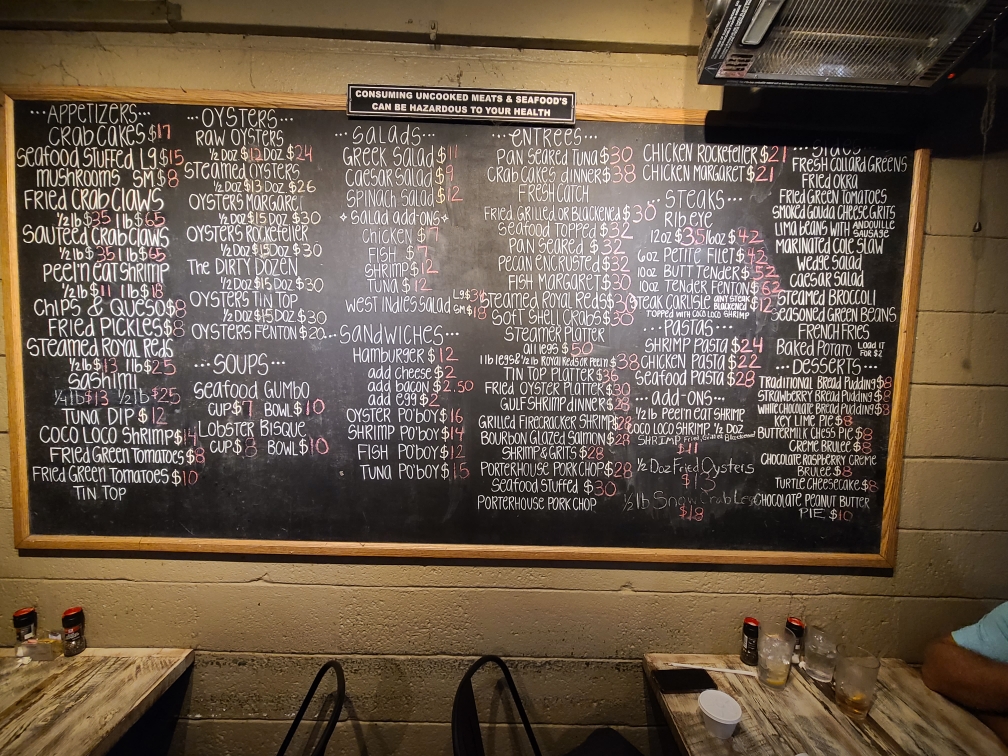 CONSUMING UNCOOKED MEATS & SEAFOOD'S
CAN BE HAZARDOUS TO YOUR HEALTH
...APPETIZERS...
CRAB CAKES $17
SEAFOOD STUFFED L9 $15
MUSHROOMS SM $8
FRIED CRAB CLAWS
½ lb $35 1 lb $65
SAUTEED CRAB CLAWS
½ lb $35 1 lb $65
PEEL'N EAT SHRIMP
½ lb $11 1 lb $18
CHIPS & QUESO $8
FRIED PICKLES $8
STEAMED ROYAL REDS
½ lb $13 1 lb $25
SASHIMI
¼ lb $13 ½ lb $25
TUNA DIP $12
COCO LOCO SHRIMP $14
FRIED GREEN TOMATOES $8
FRIED GREEN TOMATOES $10
TIN TOP
...OYSTERS...
RAW OYSTERS
½ DOZ $12 DOZ $24
STEAMED OYSTERS
½ DOZ $13 DOZ $26
OYSTERS MARGARET
½ DOZ $15 DOZ $30
OYSTERS ROCKEFELLER
½ DOZ $15 DOZ $30
THE DIRTY DOZEN
½ DOZ $15 DOZ $30
OYSTERS TIN TOP
½ DOZ $15 DOZ $30
OYSTERS FENTON $20
...SOUPS...
SEAFOOD GUMBO
CUP $7 BOWL $10
LOBSTER BISQUE
CUP $8 BOWL $10
...SALADS...
GREEK SALAD $11
CAESAR SALAD $9
SPINACH SALAD $12
SALAD ADD-ONS
CHICKEN $7
FISH $7
SHRIMP $12
TUNA $12
WEST INDIES SALAD L9 SM $18
...SANDWICHES...
HAMBURGER $12
ADD CHEESE $2
ADD BACON $2.50
ADD EGG $2
OYSTER PO'BOY $16
SHRIMP PO'BOY $14
FISH PO'BOY $12
TUNA PO'BOY $15
...ENTREES...
PAN SEARED TUNA $30
CRAB CAKES DINNER $38
FRESH CATCH
FRIED GRILLED OR BLACKENED $30
SEAFOOD TOPPED $32
PAN SEARED $32
PECAN ENCRUSTED $32
FISH MARGARET $30
STEAMED ROYAL REDS $30
SOFT SHELL CRABS $30
STEAMER PLATTER
ALL LEGS $50
1 lb LEGS & ½ lb ROYAL REDS OR PEEL'N $38
TIN TOP PLATTER $36
FRIED OYSTER PLATTER $30
GULF SHRIMP DINNER $28
GRILLED FIRECRACKER SHRIMP $28
BOURBON GLAZED SALMON $28
SHRIMP & GRITS $28
PORTERHOUSE PORK CHOP $28
SEAFOOD STUFFED $30
PORTERHOUSE PORK CHOP
CHICKEN ROCKEFELLER $21
CHICKEN MARGARET $21
...STEAKS...
RIB EYE
12oz $35 16oz $42
6oz PETITE FILET $42
10oz BUTT TENDER $52
10oz TENDER FENTON $62
STEAK CARLISLE ANY STEAK BLACKENED $12
TOPPED WITH COCO LOCO SHRIMP
...PASTAS...
SHRIMP PASTA $24
CHICKEN PASTA $22
SEAFOOD PASTA $28
...ADD-ONS...
½ lb PEEL'N EAT SHRIMP
COCO LOCO SHRIMP ½ DOZ
SHRIMP Fried, Grilled, Blackened
$11
½ Doz Fried Oysters
$13
½ lb Snow Crab Legs
$18
...SIDES...
FRESH COLLARD GREENS
FRIED OKRA
FRIED GREEN TOMATOES
SMOKED GOUDA CHEESE GRITS
LIMA BEANS WITH ANDOUILLE SAUSAGE
MARINATED COLE SLAW
WEDGE SALAD
CAESAR SALAD
STEAMED BROCCOLI
SEASONED GREEN BEANS
FRENCH FRIES
BAKED POTATO LOAD IT FOR $2
...DESSERTS...
TRADITIONAL BREAD PUDDING $8
STRAWBERRY BREAD PUDDING $8
WHITE CHOCOLATE BREAD PUDDING $8
KEY LIME PIE $8
BUTTERMILK CHESS PIE $8
CREME BRULEE $8
CHOCOLATE RASPBERRY CREME
BRULEE $8
TURTLE CHEESECAKE $8
CHOCOLATE PEANUT BUTTER
PIE $10